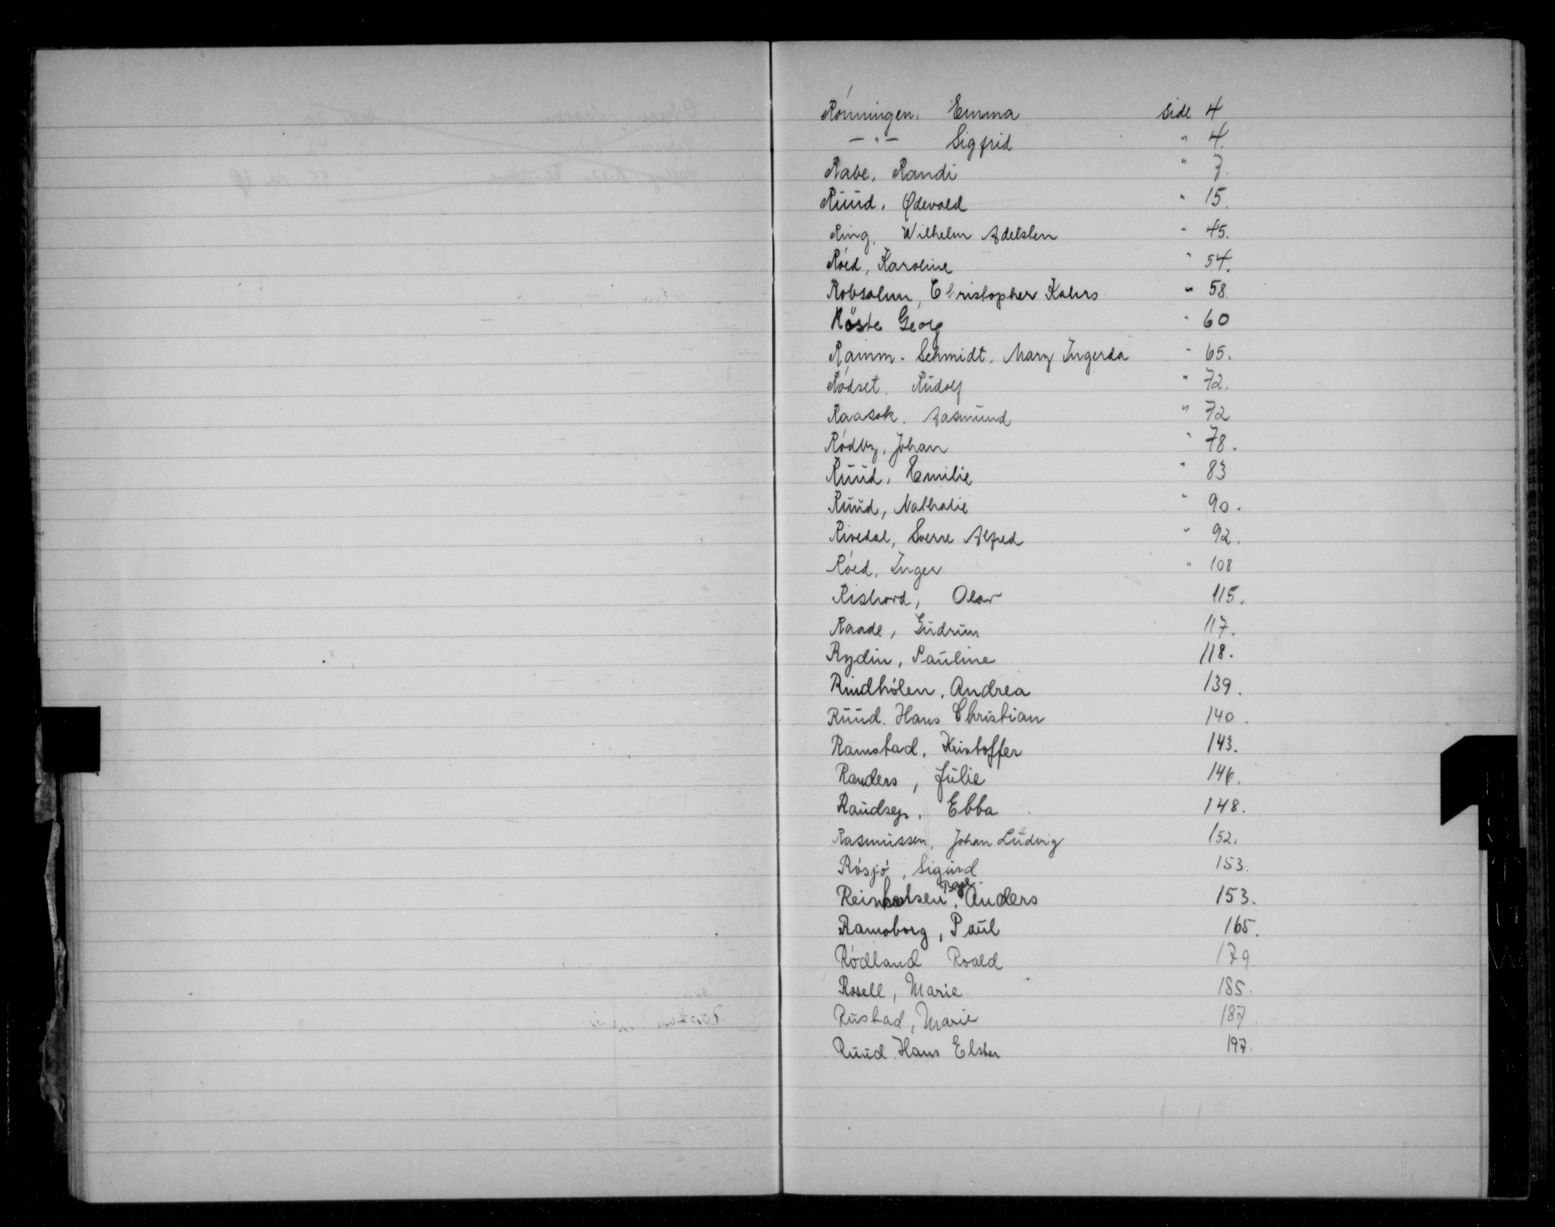 Rónningen, Emma side 4
—"— Sigfrid " 4.
Rabe, Randi " 7.
Ruud, Ødevald " 15.
Ring, Wilhelm Adelsten " 45.
Róed, Karoline " 54.
Robsahm, Christopher Kahrs " 58.
Röste Georg " 60
Ramm-Schmidt, Mary Ingerda " 65.
Ródset, Rudolf " 72.
Raasok, Aasmund " 72
Ródby, Johan " 78.
Ruud, Emilie " 83
Ruud, Nathalie " 90.
Rivedal, Sverre Alfred " 92.
Róed, Inger " 108
Rishovd, Olav 115.
Raade, Gudrun 117.
Rydin, Pauline 118.
Rindhólen, Andrea 139.
Ruud. Hans Christian 140.
Ramstad, Kristoffer 143.
Randers, Julie 146.
Raudsep, Ebba 148.
Rasmussen, Johan Ludvig 152.
Rósjó, Sigurd 153.
Anders 153.
Ramsborg, Paul 165.
Ródland Roald 179
Rosell, Marie 185.
Rustad, Marie 187.
Ruud Hans Elster 197.